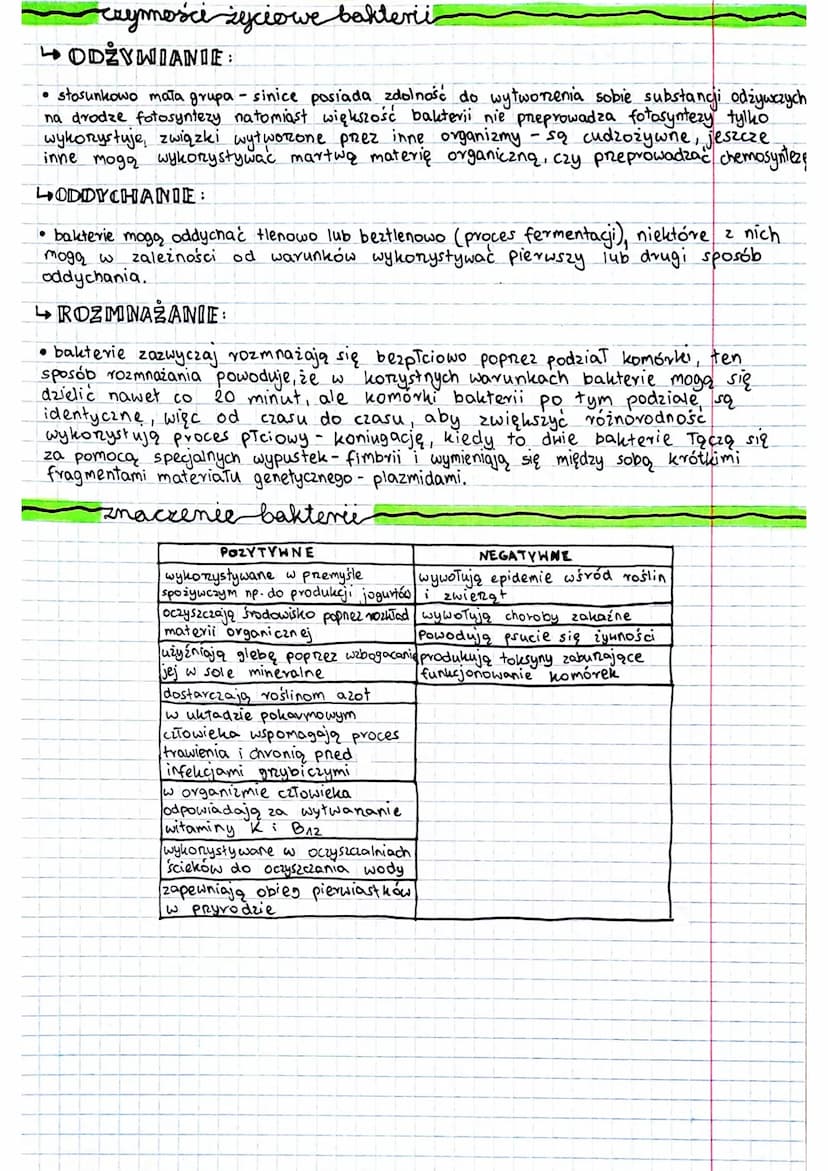 czynności życiowe bakterii
↳ ODŻYWIANIE:
• stosunkowo mała grupa - sinice posiada zdolność do wytworzenia sobie substancji odżywczych
na drodze fotosyntezy natomiast większość bakterii nie przeprowadza fotosyntezy tylko
wykorzystuje, związki wytworzone przez inne organizmy - są cudzożywne, jeszcze
inne mogą wykorzystywać martwą materię organiczną, czy przeprowadzać chemosyntezę
↳ ODDYCHANIE:
• bakterie mogą oddychać tlenowo lub beztlenowo (proces fermentacji), niektóre z nich
mogą w zależności od warunków wykorzystywać pierwszy lub drugi sposób
oddychania.
↳ ROZMNAŻANIE:
• bakterie zazwyczaj rozmnażają się bezpłciowo poprzez podział komórki, ten
sposób rozmnażania powoduje, że w korzystnych warunkach bakterie mogą się
dzielić nawet co 20 minut, ale komórki bakterii po tym podziale są
identyczne, więc od czasu do czasu, aby zwiększyć różnorodność
wykorzystują proces płciowy - koniugację, kiedy to dwie bakterie łączą się
za pomocą specjalnych wypustek - fimbrii i wymieniają się między sobą krótkimi
fragmentami materiału genetycznego - plazmidami.
znaczenie bakterii
POZYTYWNE
NEGATYWNE
wykorzystywane w przemyśle
spożywczym np. do produkcji jogurtów
wywołują epidemie wśród roślin
i zwierząt
oczyszczają środowisko poprzez rozkład
materii organicznej
wywołują choroby zakaźne
powodują psucie się żywności
użyźniają glebę poprzez wzbogacanie
jej w sole mineralne
produkują toksyny zaburzające
funkcjonowanie komórek
dostarczają roślinom azot
w układzie pokarmowym
człowieka wspomagają proces
trawienia i chronią przed
infekcjami grzybiczymi
w organizmie człowieka
odpowiadają za wytwarzanie
witaminy K i B12
wykorzystywane w oczyszczalniach
ścieków do oczyszczania wody
zapewniają obieg pierwiastków
w przyrodzie